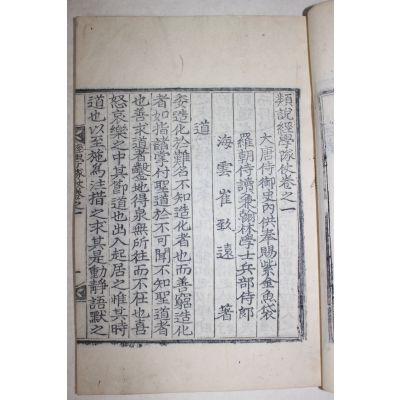 類說經學隊仗卷之一
大唐侍御史內供奉賜紫金魚袋
羅朝侍讀兼翰林學士兵部侍郎
海雲崔致遠 著
道
委造化於難名不知造化者也而善窮造化
者如指諸掌付聖道於不可聞不知聖道者
也善求道者鑿地得泉無所往而不在也喜
怒哀樂之中其節道也出入起居之惟其時
道也以至施為注措之求其是動靜語默之
經學隊仗卷之一